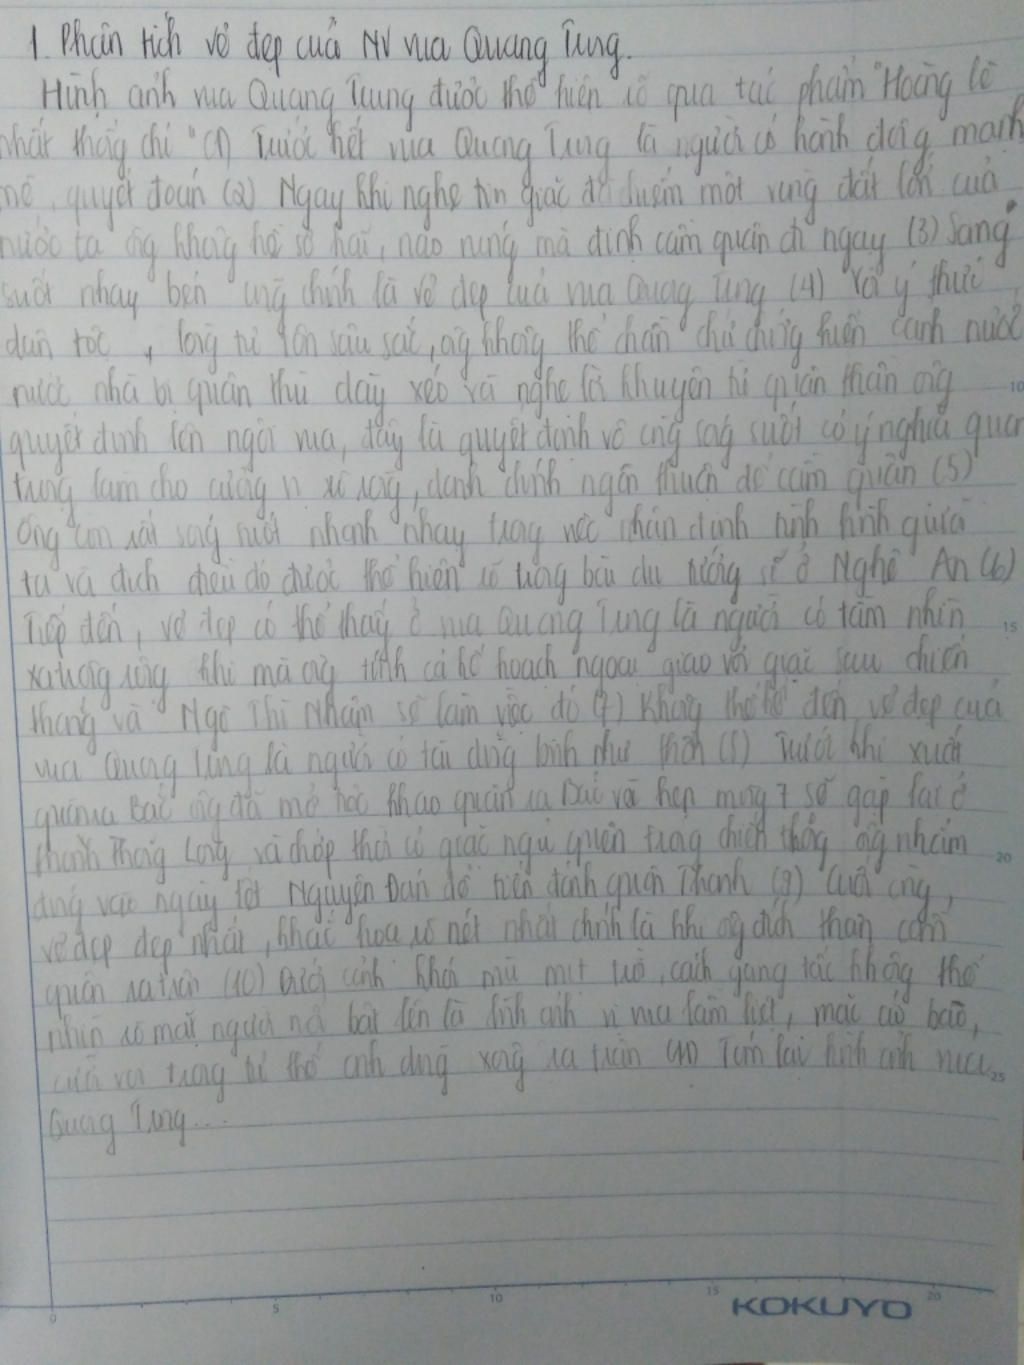 1. Phân tích vẻ đẹp của NV vua Quang Trung.
Hình ảnh vua Quang Trung được thể hiện rõ qua tác phẩm "Hoàng lê
nhất thống chí" (1) Trước hết vua Quang Trung là người có hành động mạnh
mẽ, quyết đoán (2) Ngay khi nghe tin giặc đã chiếm một vùng đất lớn của
nước ta ông không hề sợ hãi, nao núng mà định cầm quân đi ngay (3) Sáng
suốt nhạy bén cũng chính là vẻ đẹp của vua Quang Trung (4) Và ý thức
dân tộc, lòng tự tôn sâu sắc, ông không thể chần chứ chứng kiến cảnh nước
nước nhà bị quân thù dày xéo và nghe lời khuyên từ quân thần ông
quyết định lên ngôi vua, đây là quyết định vô cùng sáng suốt có ý nghĩa quan
trọng làm cho cương vị rõ ràng, danh chính ngôn thuận để cầm quân (5)
Ông còn rất sáng suốt nhanh nhạy trong việc phán định tình hình giữa
ta và địch điều đó được thể hiện rõ trong bài dụ tướng sĩ ở Nghệ An (6)
Tiếp đến, vẻ đẹp có thể thấy ở vua Quang Trung là người có tầm nhìn
xa trông rộng khi mà ông tính cả kế hoạch ngoại giao với giặc sau chiến
thắng và Ngô Thì Nhậm sẽ làm việc đó (7) Không thể kể đến vẻ đẹp của
vua Quang Trung là người có tài dụng binh như thần (8) Trước khi xuất
quân ra Bắc ông đã mở tiệc khao quân ra Bắc và hẹn mùng 7 sẽ gặp lại ở
thành Thăng Long và chớp thời cơ giặc ngủ quên trong chiến thắng ông nhắm
đúng vào ngày Tết Nguyên Đán để tiến đánh quân Thanh (9) Cuối cùng,
vẻ đẹp đẹp nhất, khắc họa rõ nét nhất chính là khi ông đích thân cầm
quân ra trận (10) Dưới cảnh khói mù mịt trời, cách gang tấc không thể
nhìn rõ mặt người nổi bật lên là hình ảnh vị vua lẫm liệt, mặc áo bào,
cưỡi voi trong tư thế anh dũng xông ra trận (11) Tóm lại hình ảnh vua
Quang Trung...
5
10
15
20
25
0
5
10
15
20
KOKUYO